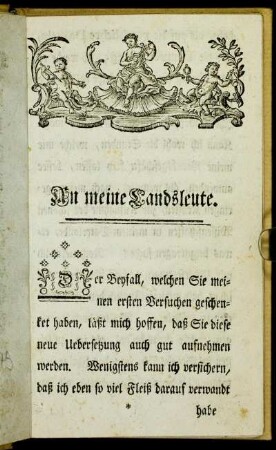 An meine Landsleute.
Der Beyfall, welchen Sie mei-
nen ersten Versuchen geschen-
ket haben, läßt mich hoffen, daß Sie diese
neue Uebersetzung auch gut aufnehmen
werden. Wenigstens kann ich versichern,
daß ich eben so viel Fleiß darauf verwandt
*
habe